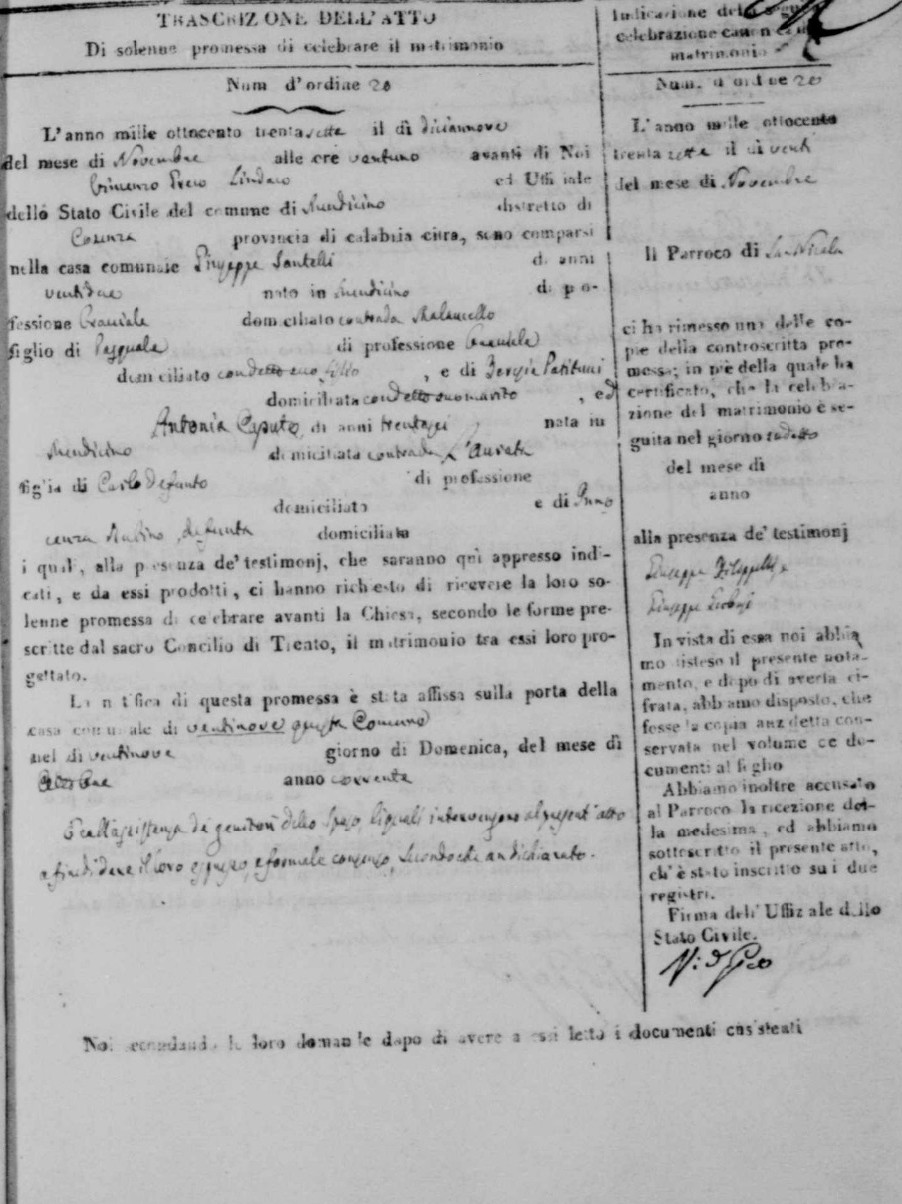 TRASCRIZIONE DELL'ATTO
Di solenne promessa di celebrare il matrimonio
Num d'ordine 20
L'anno mille ottocento trentasette il dì diciannove
del mese di Novembre alle ore ventuno avanti di Noi
Vincenzo Greco Sindaco ed Uffiziale
dello Stato Civile del comune di Mendicino distretto di
Cosenza provincia di calabria citra, sono comparsi
nella casa comunale Giuseppe Santelli di anni
ventidue nato in Mendicino di pro-
fessione domiciliato contrada
figlio di Pasquale di professione
domiciliato con detto suo figlio , e di
domiciliata con detto suo marito , ed
Antonia Caputo di anni trentasei nata in
Mendicino domiciliata contrada L'Aurata
figlia di Carlo defunto di professione
domiciliato e di Inno
cenza Rubino defunta domiciliata
i quali, alla presenza de' testimonj, che saranno quì appresso indi-
cati, e da essi prodotti, ci hanno richiesto di ricevere la loro so-
lenne promessa di celebrare avanti la Chiesa, secondo le forme pre-
scritte dal sacro Concilio di Trento, il matrimonio tra essi loro pro-
gettato.
La notifica di questa promessa è stata affissa sulla porta della
casa comunale di ventinove questa Comune
nel dì ventinove giorno di Domenica, del mese di
Ottobre anno corrente
E coll'assistenza de genitori dello Sposo, li quali intervengono al present'atto
a fin di dare il loro espresso, e formale consenso, secondo che an dichiarato.
Noi secondando le loro domande dopo di avere a essi letto i documenti consistenti
Indicazione della seguita
celebrazione canonica del
matrimonio
Num. d'ordine 20
L'anno mille ottocento
trenta sette il dì venti
del mese di Novembre
Il Parroco di San Nicola
ci ha rimesso una delle co-
pie della controscritta pro-
messa; in piè della quale ha
certificato, che la celebra-
zione del matrimonio è se-
guita nel giorno sudetto
del mese di
anno
alla presenza de' testimonj
Giuseppe
Giuseppe
In vista di essa noi abbia
mo disteso il presente nota-
mento, e dopo di averla ci-
frata, abbiamo disposto, che
fosse la copia anzidetta con-
servata nel volume de do-
cumenti al foglio
Abbiamo inoltre accusato
al Parroco la ricezione del-
la medesima, ed abbiamo
sottoscritto il presente atto,
ch'è stato inscritto su i due
registri.
Firma dell' Uffiziale dello
Stato Civile.